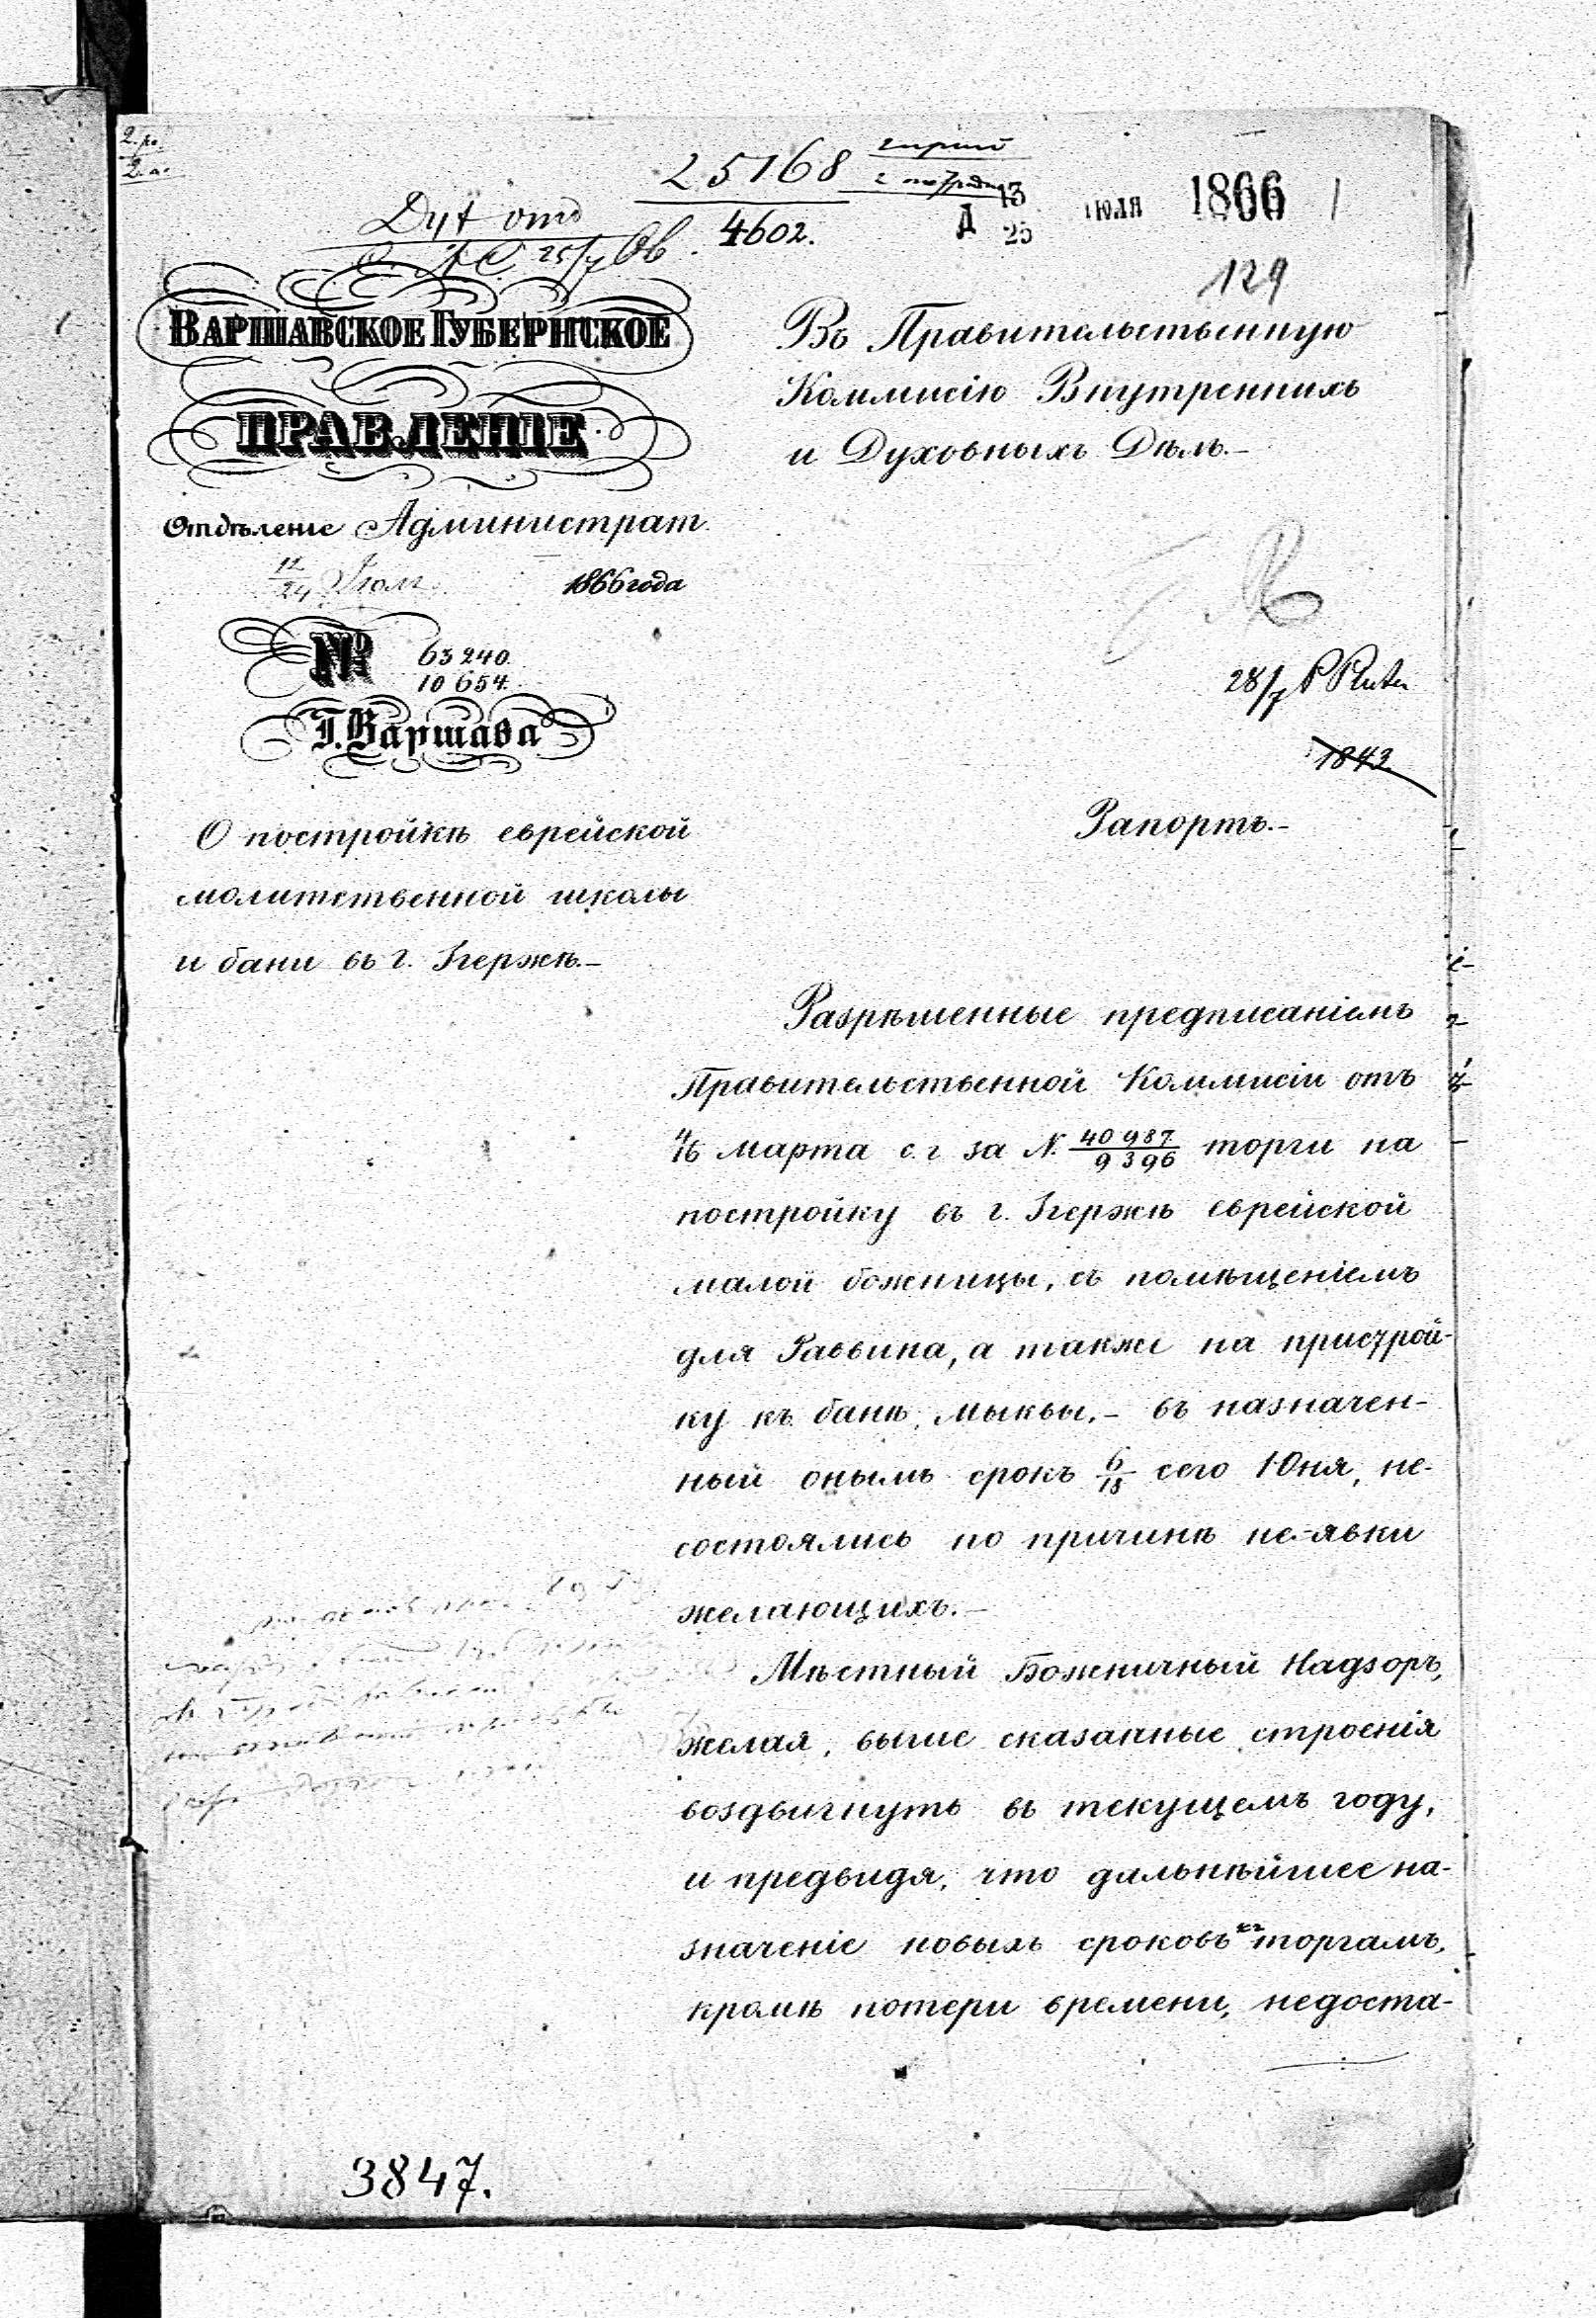 25168
4602.
13
25
ІЮЛЯ 1866
129
ВАРШАВСКОЕ ГУБЕРНСКОЕ
ПРАВЛЕНІЕ
Отдѣленіе Администрат.
12
24 Іюля 1866 года
№ 63240.
10654.
Г. Варшава
О постройкѣ еврейской
молитственной школы
и бани въ г. Згержѣ.-
Въ Правительственную
Коммисію Внутреннихъ
и Духовныхъ Дѣлъ.-
28/7
1843
Рапортъ.-
Разрѣшенные предписаніемъ
Правительственной Коммисіи отъ
4/16 Марта с. г за N. 40987/9396 торги на
постройку въ г. Згержѣ еврейской
малой божницы, съ помѣщеніемъ
для Раввина, а также на пристрой-
ку къ банѣ, мыквы,- въ назначен-
ный онымъ срокъ 6/18 сего Юня, не-
состоялись по причинѣ не-явки
желающихъ.-
Мѣстный Божничный Надзоръ,
желая, выше сказанные строенія
воздвигнуть въ текущемъ году,
и предвидя, что дальнѣйшее на-
значеніе новыхъ сроковъ къ торгамъ,
кромѣ потери времени, недоста-
3847.